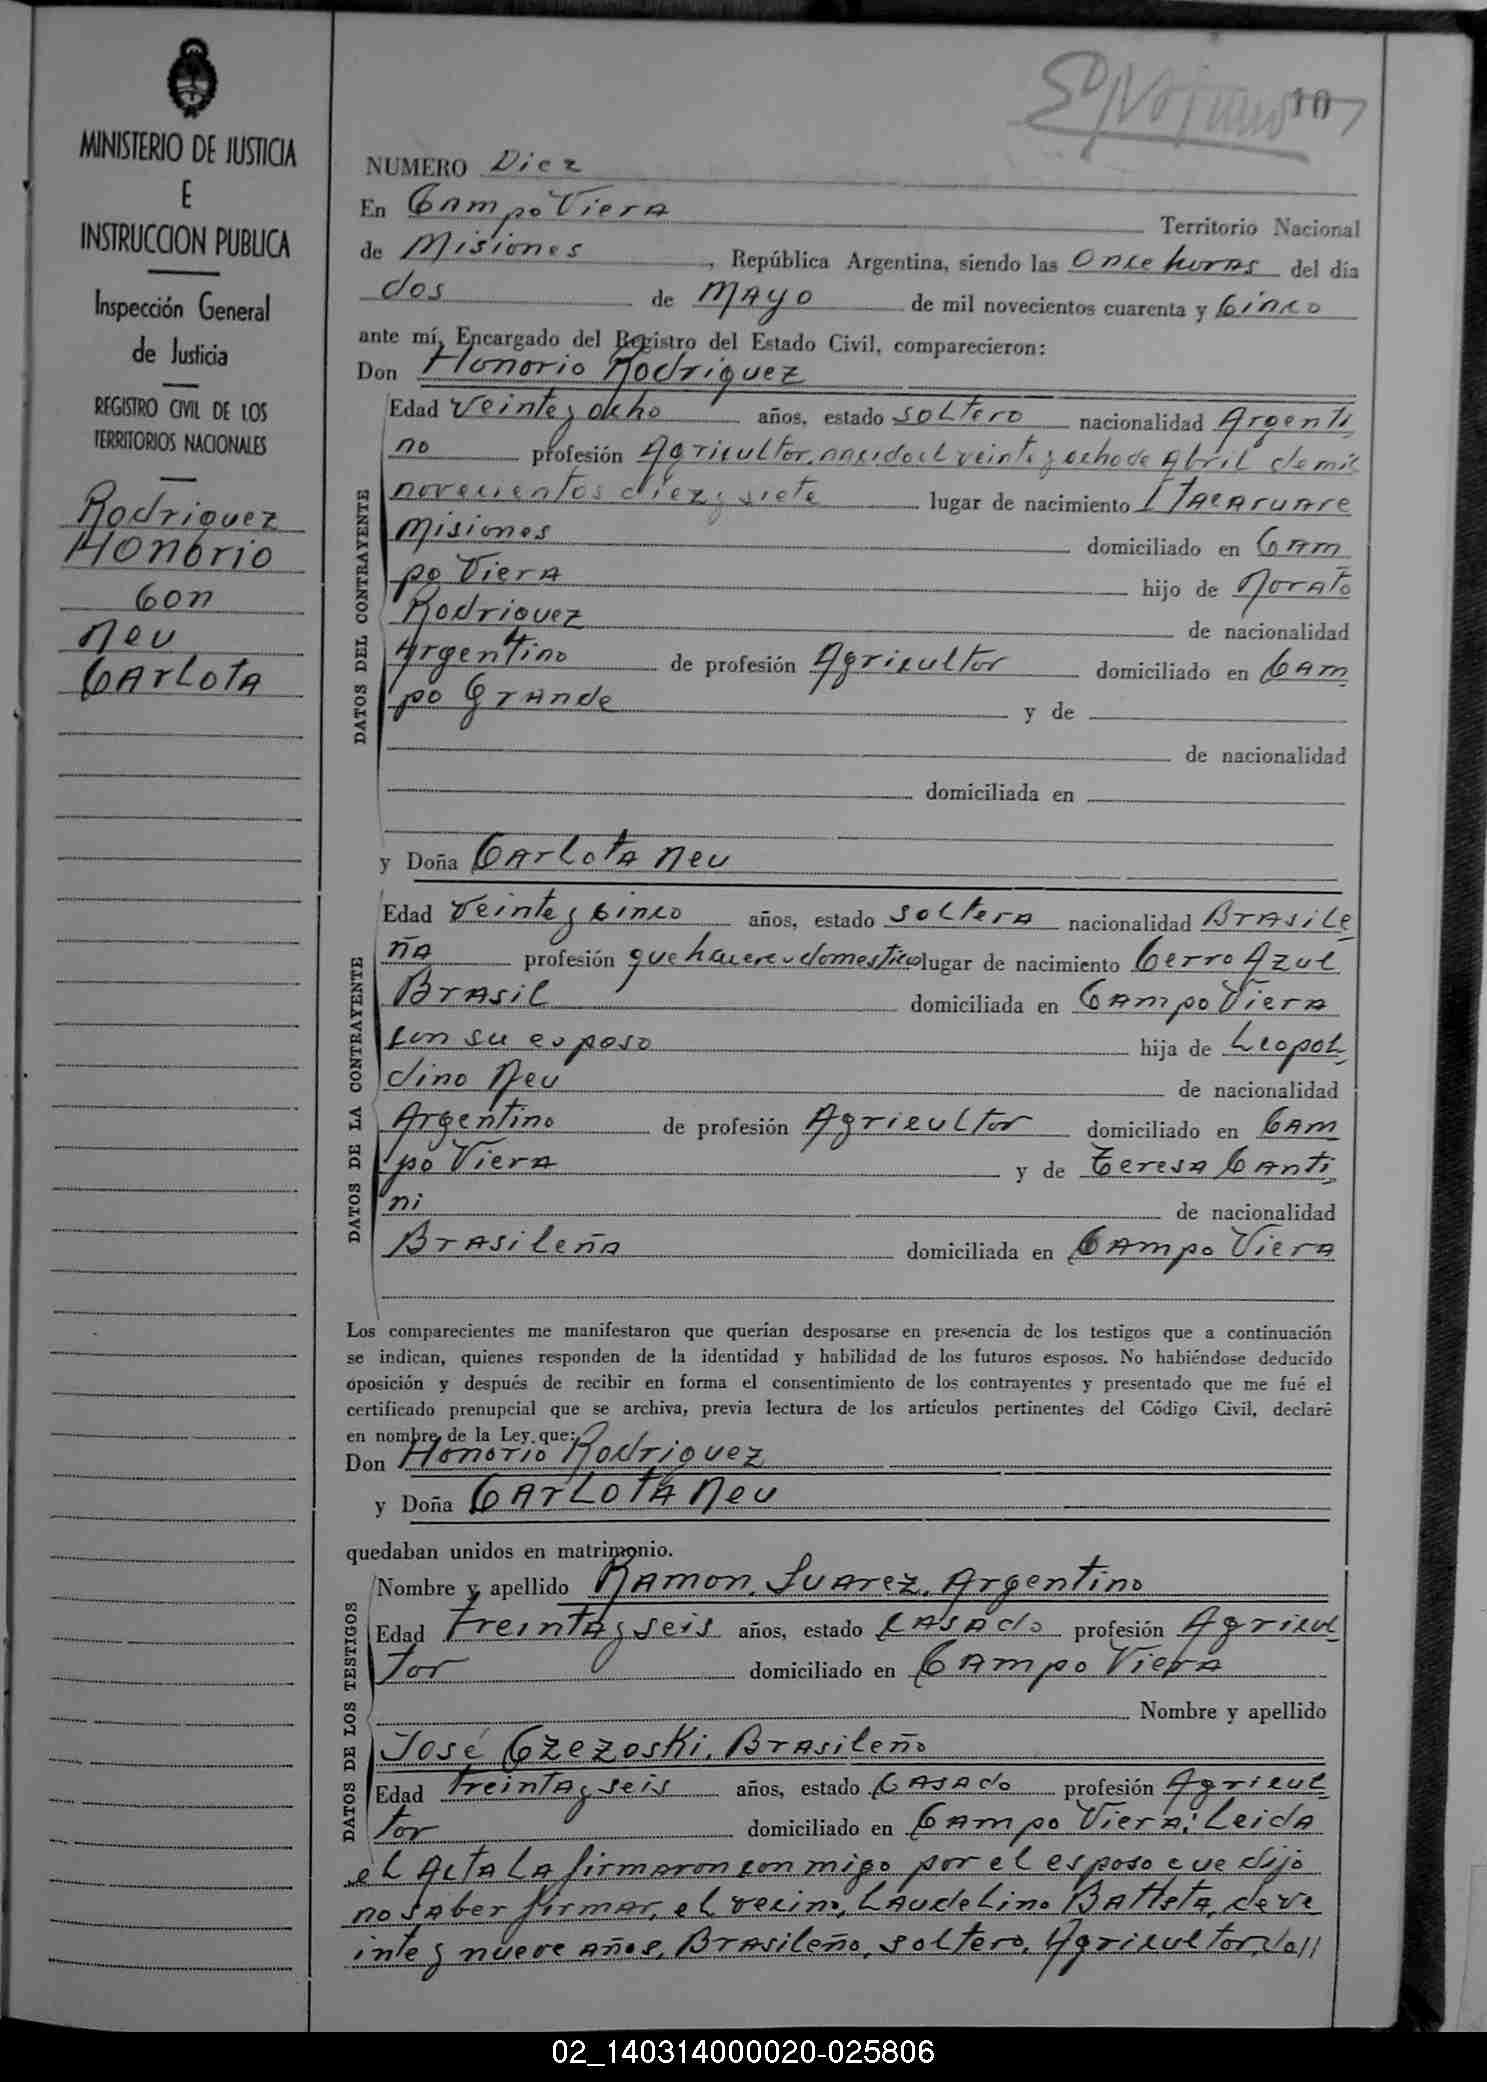 MINISTERIO DE JUSTICIA
E
INSTRUCCION PUBLICA
Inspección General
de Justicia
REGISTRO CIVIL DE LOS
TERRITORIOS NACIONALES
Rodriguez
Honorio
Con
Neu
Carlota
107
NUMERO Diez
En Campo Viera Territorio Nacional
de Misiones, República Argentina, siendo las Once horas del día
dos de Mayo de mil novecientos cuarenta y Cinco
ante mí, Encargado del Registro del Estado Civil, comparecieron:
Don Honorio Rodriguez
DATOS DEL CONTRAYENTE
Edad Veinte y ocho años, estado soltero nacionalidad Argenti
no profesión Agricultor, nacido el veinte y ocho de Abril de mil
novecientos diez y siete lugar de nacimiento Itacaruare
Misiones domiciliado en Cam
po Viera hijo de Norato
Rodriguez de nacionalidad
Argentino de profesión Agricultor domiciliado en Cam
po Grande y de
de nacionalidad
domiciliada en
y Doña Carlota Neu
DATOS DE LA CONTRAYENTE
Edad Veinte y cinco años, estado soltera nacionalidad Brasile
ña profesión quehaceres domestico lugar de nacimiento Cerro Azul
Brasil domiciliada en Campo Viera
con su esposo hija de Leopol
dino Neu de nacionalidad
Argentino de profesión Agricultor domiciliado en Cam
po Viera y de Teresa Canti
ni de nacionalidad
Brasileña domiciliada en Campo Viera
Los comparecientes me manifestaron que querían desposarse en presencia de los testigos que a continuación
se indican, quienes responden de la identidad y habilidad de los futuros esposos. No habiéndose deducido
oposición y después de recibir en forma el consentimiento de los contrayentes y presentado que me fué el
certificado prenupcial que se archiva, previa lectura de los artículos pertinentes del Código Civil, declaré
en nombre de la Ley que:
Don Honorio Rodriguez
y Doña Carlota Neu
quedaban unidos en matrimonio.
DATOS DE LOS TESTIGOS
Nombre y apellido Ramon Suarez, Argentino
Edad treinta y seis años, estado casado profesión Agricul
tor domiciliado en Campo Viera
Nombre y apellido
José Czezoski, Brasileño
Edad treinta y seis años, estado casado profesión Agricul
tor domiciliado en Campo Viera; Leida
el Acta la firmaron con migo por el esposo que dijo
no saber firmar, el vecino, Laudelino Battista, de ve
inte y nueve años, Brasileño, soltero, Agricultor, do//
02_140314000020-025806